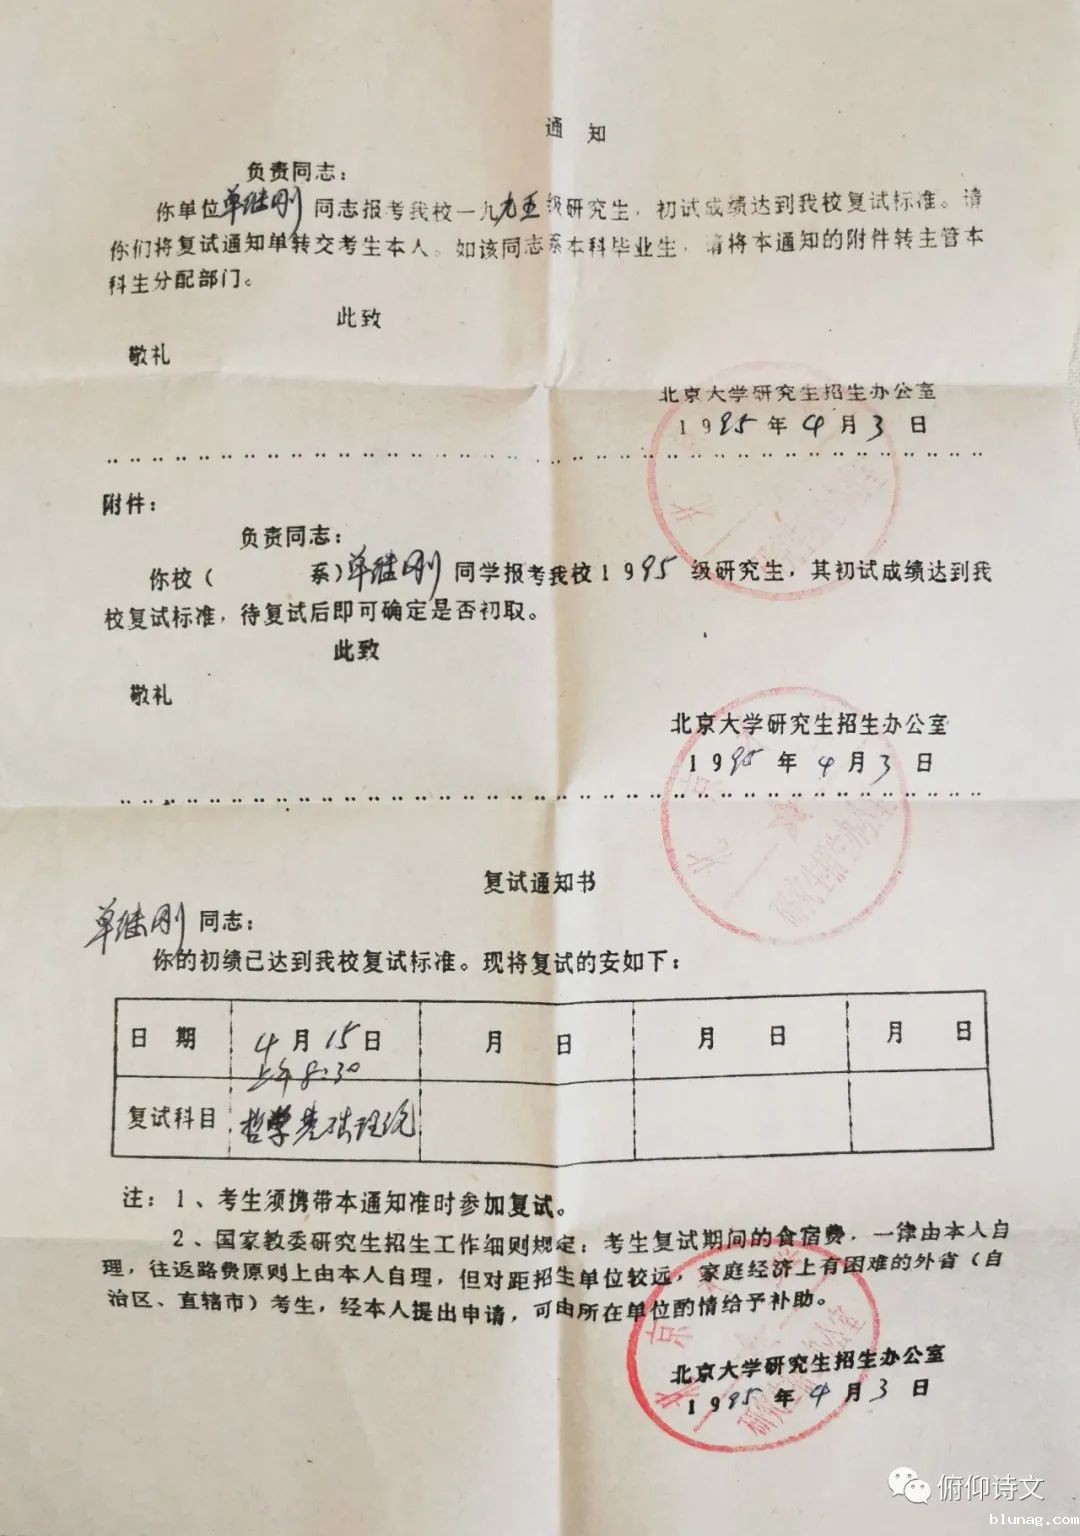 通 知
负责同志：
你单位单继刚同志报考我校一九九五级研究生，初试成绩达到我校复试标准。请
你们将复试通知单转交考生本人。如该同志系本科毕业生，请将本通知的附件转主管本
科生分配部门。
此致
敬礼
北京大学研究生招生办公室
1995年4月3日
附件：
负责同志：
你校（ 系）单继刚同学报考我校1995级研究生，其初试成绩达到我
校复试标准，待复试后即可确定是否初取。
此致
敬礼
北京大学研究生招生办公室
1995年4月3日
复试通知书
单继刚同志：
你的初绩已达到我校复试标准。现将复试的安如下：
日 期 4月15日 月 日 月 日 月 日
上午8:30
复试科目 哲学基础理论
注：1、考生须携带本通知准时参加复试。
2、国家教委研究生招生工作细则规定：考生复试期间的食宿费，一律由本人自
理，往返路费原则上由本人自理，但对距招生单位较远，家庭经济上有困难的外省（自
治区、直辖市）考生，经本人提出申请，可由所在单位酌情给予补助。
北京大学研究生招生办公室
1995年4月3日
北京大学
研究生招生办公室
俯仰诗文
blunag.com